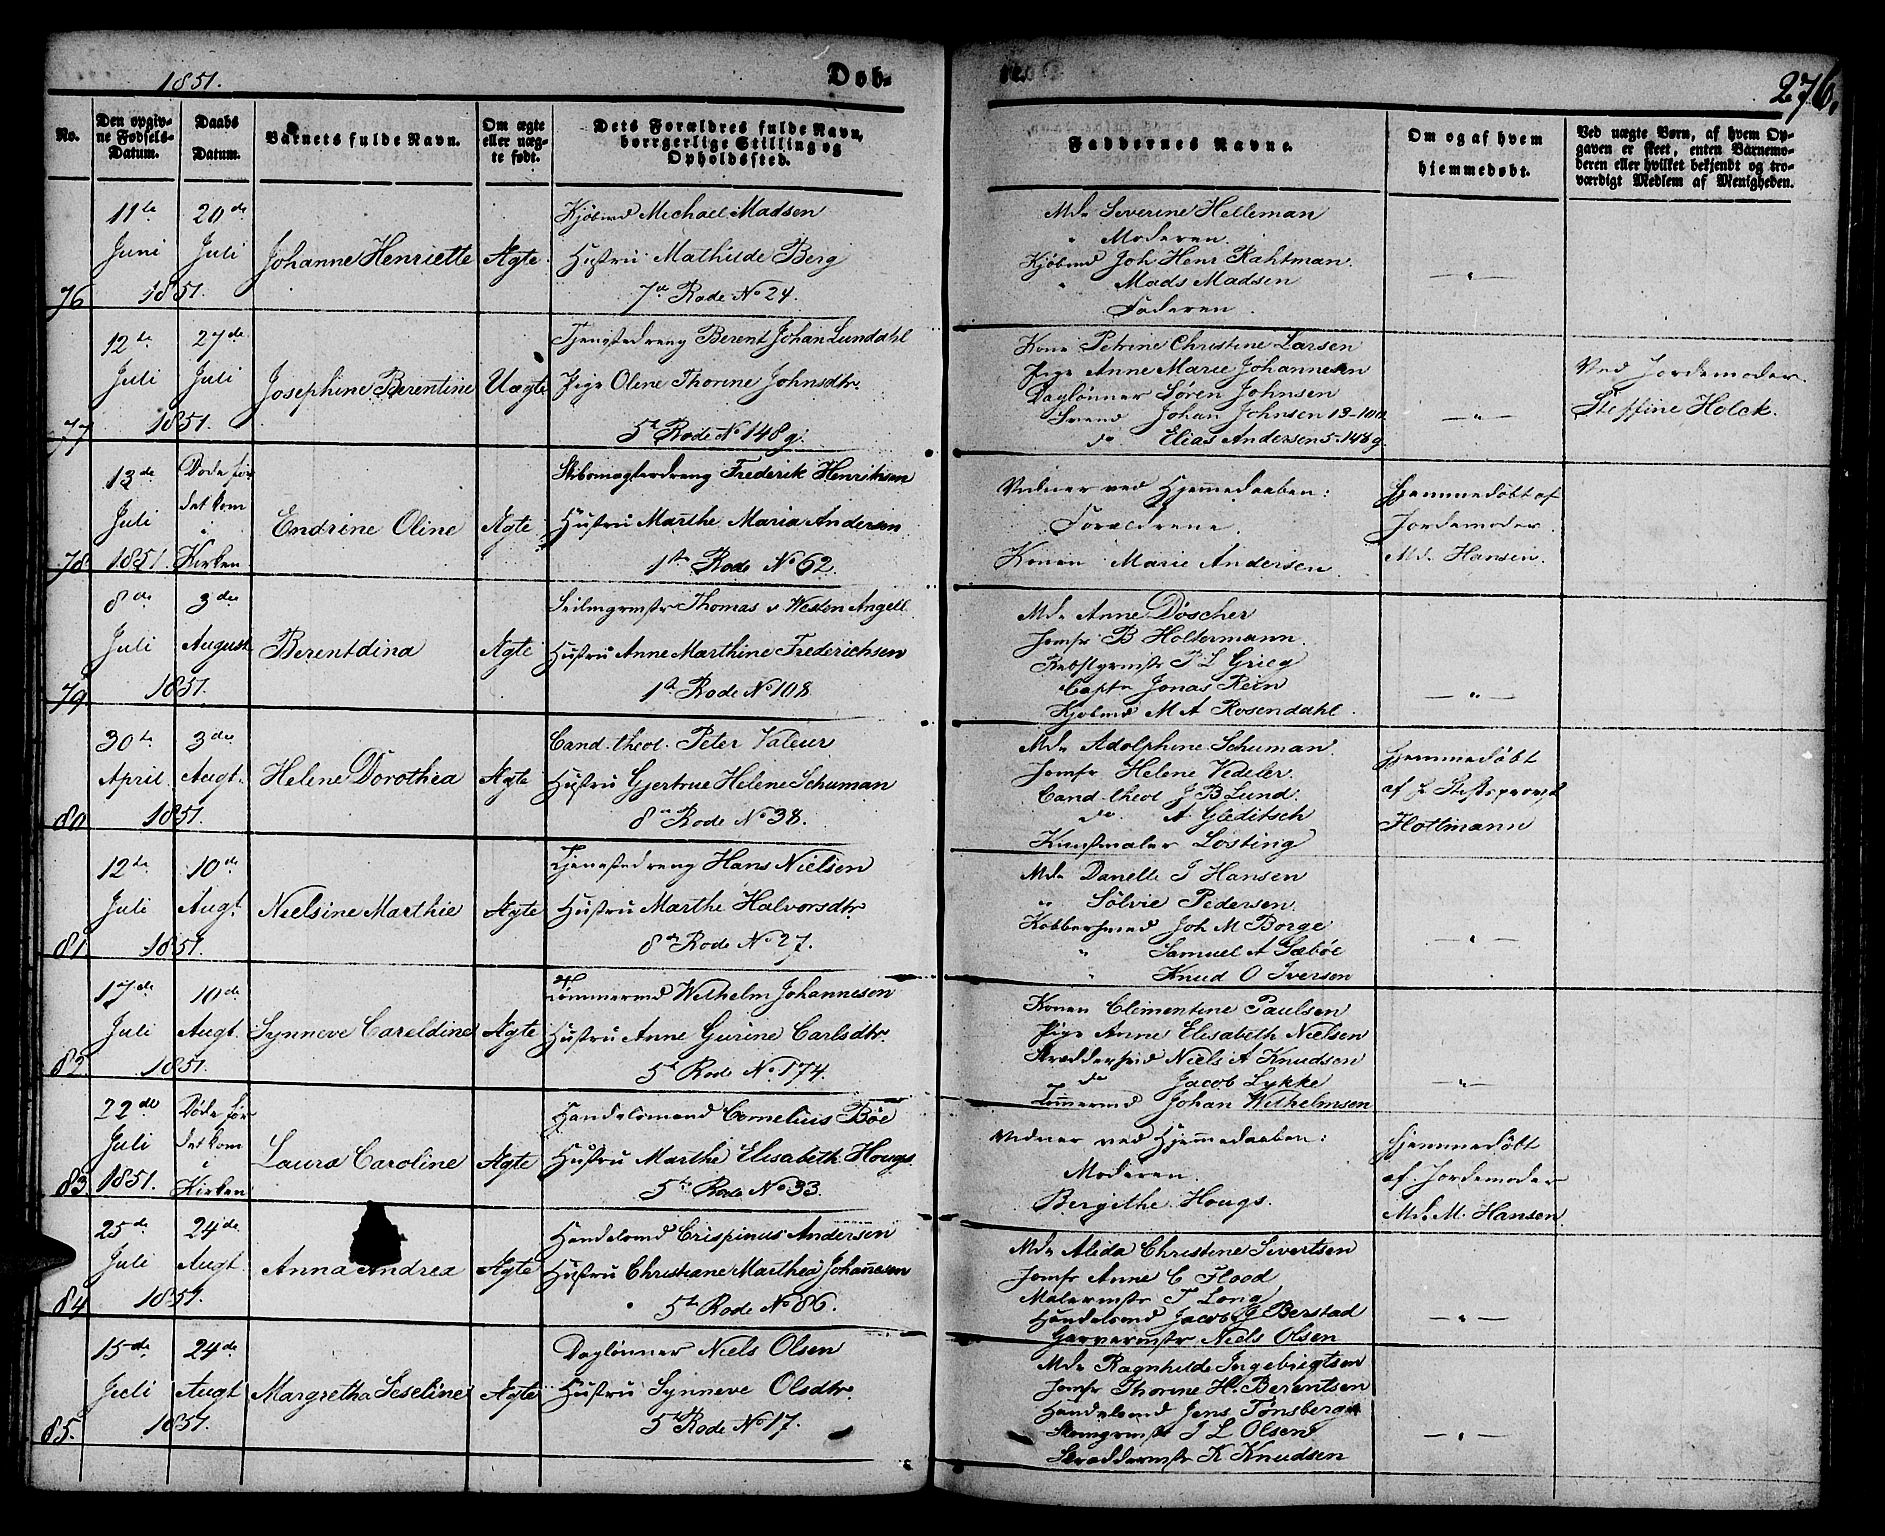 1851.
Døb-
276.
No.
Den opgiv-
ne Fødsels-
Datum.
Daabs
Datum.
Barnets fulde Navn.
Om ægte
eller uæg-
te født.
Dets Forældres fulde Navn,
borgerlige Stilling og
Opholdssted.
Faddernes Navne.
Om og af hvem
hjemmedøbt.
Ved uægte Børn, af hvem Op-
gaven er skeet, enten Barnemo-
deren eller hvilket bekjendt og tro-
værdigt Medlem af Menigheden.
76
11te
Juni
1851.
20de
Juli
Johanne Henriette
Ægte
Kjøbmd Michael Madsen
Hustru Mathilde Berg
7de Rode No 24.
Mde Severine Helleman
" Moderen.
Kjøbmd Joh Henr Rahtman.
" Mads Madsen
Faderen.
— " —
77
12te
Juli
1851.
27de
Juli
Josephine Berentine
Uægte
Tjenestedreng Berent Johan Lunddahl
Pige Oline Thorine Johnsdtr.
5te Rode No 148 g.
Kone Petrine Christine Larsen
Pige Anne Marie Johannesen
Daglønner Søren Johnsen
Svend Johan Johnsen 13-100
do Elias Andersen 5-148 g.
— " —
Ved Jordemoder
Steffine Holck.
78
13de
Juli
1851
Døde før
det kom
i
Kirken
Endrine Oline
Ægte
Skibsmagterdreng Frederik Henriksen
Hustru Marthe Maria Andersen
1ste Rode No 62.
Vidner ved Hjemmedaaben:
Forældrene
Konen Marie Andersen.
Hjemmedøbt af
Jordemoder
Md. Hansen.
79
8de
Juli
1851.
3de
August
Berentdina
Ægte
Seilmgrmstr Thomas v Westen Angell
Hustru Anne Marthine Frederichsen
1ste Rode No 108.
Mde Anne Døscher
Jomfr B Holtermann.
Rebslgrmstr P L Grieg
Captn Jonas Rein
Kjøbmd M A Rosendahl.
— " —
80
30te
April
1851.
3de
Augt.
Helene Dorothea
Ægte
Cand. theol. Peter Valeur
Hustru Gjertrue Helene Schuman
8de Rode No 38.
Mde Adolphine Schuman.
Jomfr Helene Vedeler.
Cand. theol J B Lund.
do. A Gleditsch
Kunstmaler Losting
Hjemmedøbt
af Hr Stiftsprovst
Holtmann
81.
12te
Juli
1851.
10de
Augt.
Nielsine Marthie
Ægte
Tjenestedreng Hans Nielsen
Hustru Marthe Halvorsdtr.
8de Rode No 27.
Mde Danelle J Hansen
" Sølvie Pedersen.
Kobbersmed Joh M Borge
" Samuel A Sæbøe
" Knud O Iversen
— " —
82
17de
Juli
1851.
10de
Augt.
Synneve Careldine
Ægte
Tømmermd Wilhelm Johannesen
Hustru Anne Gurine Carlsdtr.
5te Rode No 174.
Konen Clementine Paulsen
Pige Anne Elisabeth Nielsen
Skræddersvd Niels A Knudsen
do Jacob Lykke
Tømermd Johan Wilhelmsen
— " —
83
22de
Juli
1851.
Døde før
det kom
i
Kirken
Laura Caroline
Ægte
Handelsmand Cornelius Bøe
Hustru Marthe Elisabeth Hougs.
5te Rode No 33.
Vidner ved Hjemmedaaben:
Moderen.
Bergithe Hougs.
Hjemmedøbt
af Jordemoder
Md. M. Hansen
84
25de
Juli
1851.
24de
Augt.
Anna Andrea
Ægte
Handelsmd Crispinus Andersen
Hustru Christiane Marthea Johannesen
5te Rode No 86.
Mde Alida Christine Sivertsen
Jomfr Anne C Flood
Malermstr T Long
Handelsmd Jacob G Berstad
Garvermstr Niels Olsen
— " —
85.
15de
Juli
1851.
24de
Augt
Margretha Seseline
Ægte
Daglønner Niels Olsen
Hustru Synneve Olsdtr.
5te Rode No 17.
Mde Ragnhilde Ingebrigtsen
Jomfr Thorine H. Berentsen
Handelsmd Jens Tønsberg
J L Olsen
Skræddermstr K Knudsen
— " —